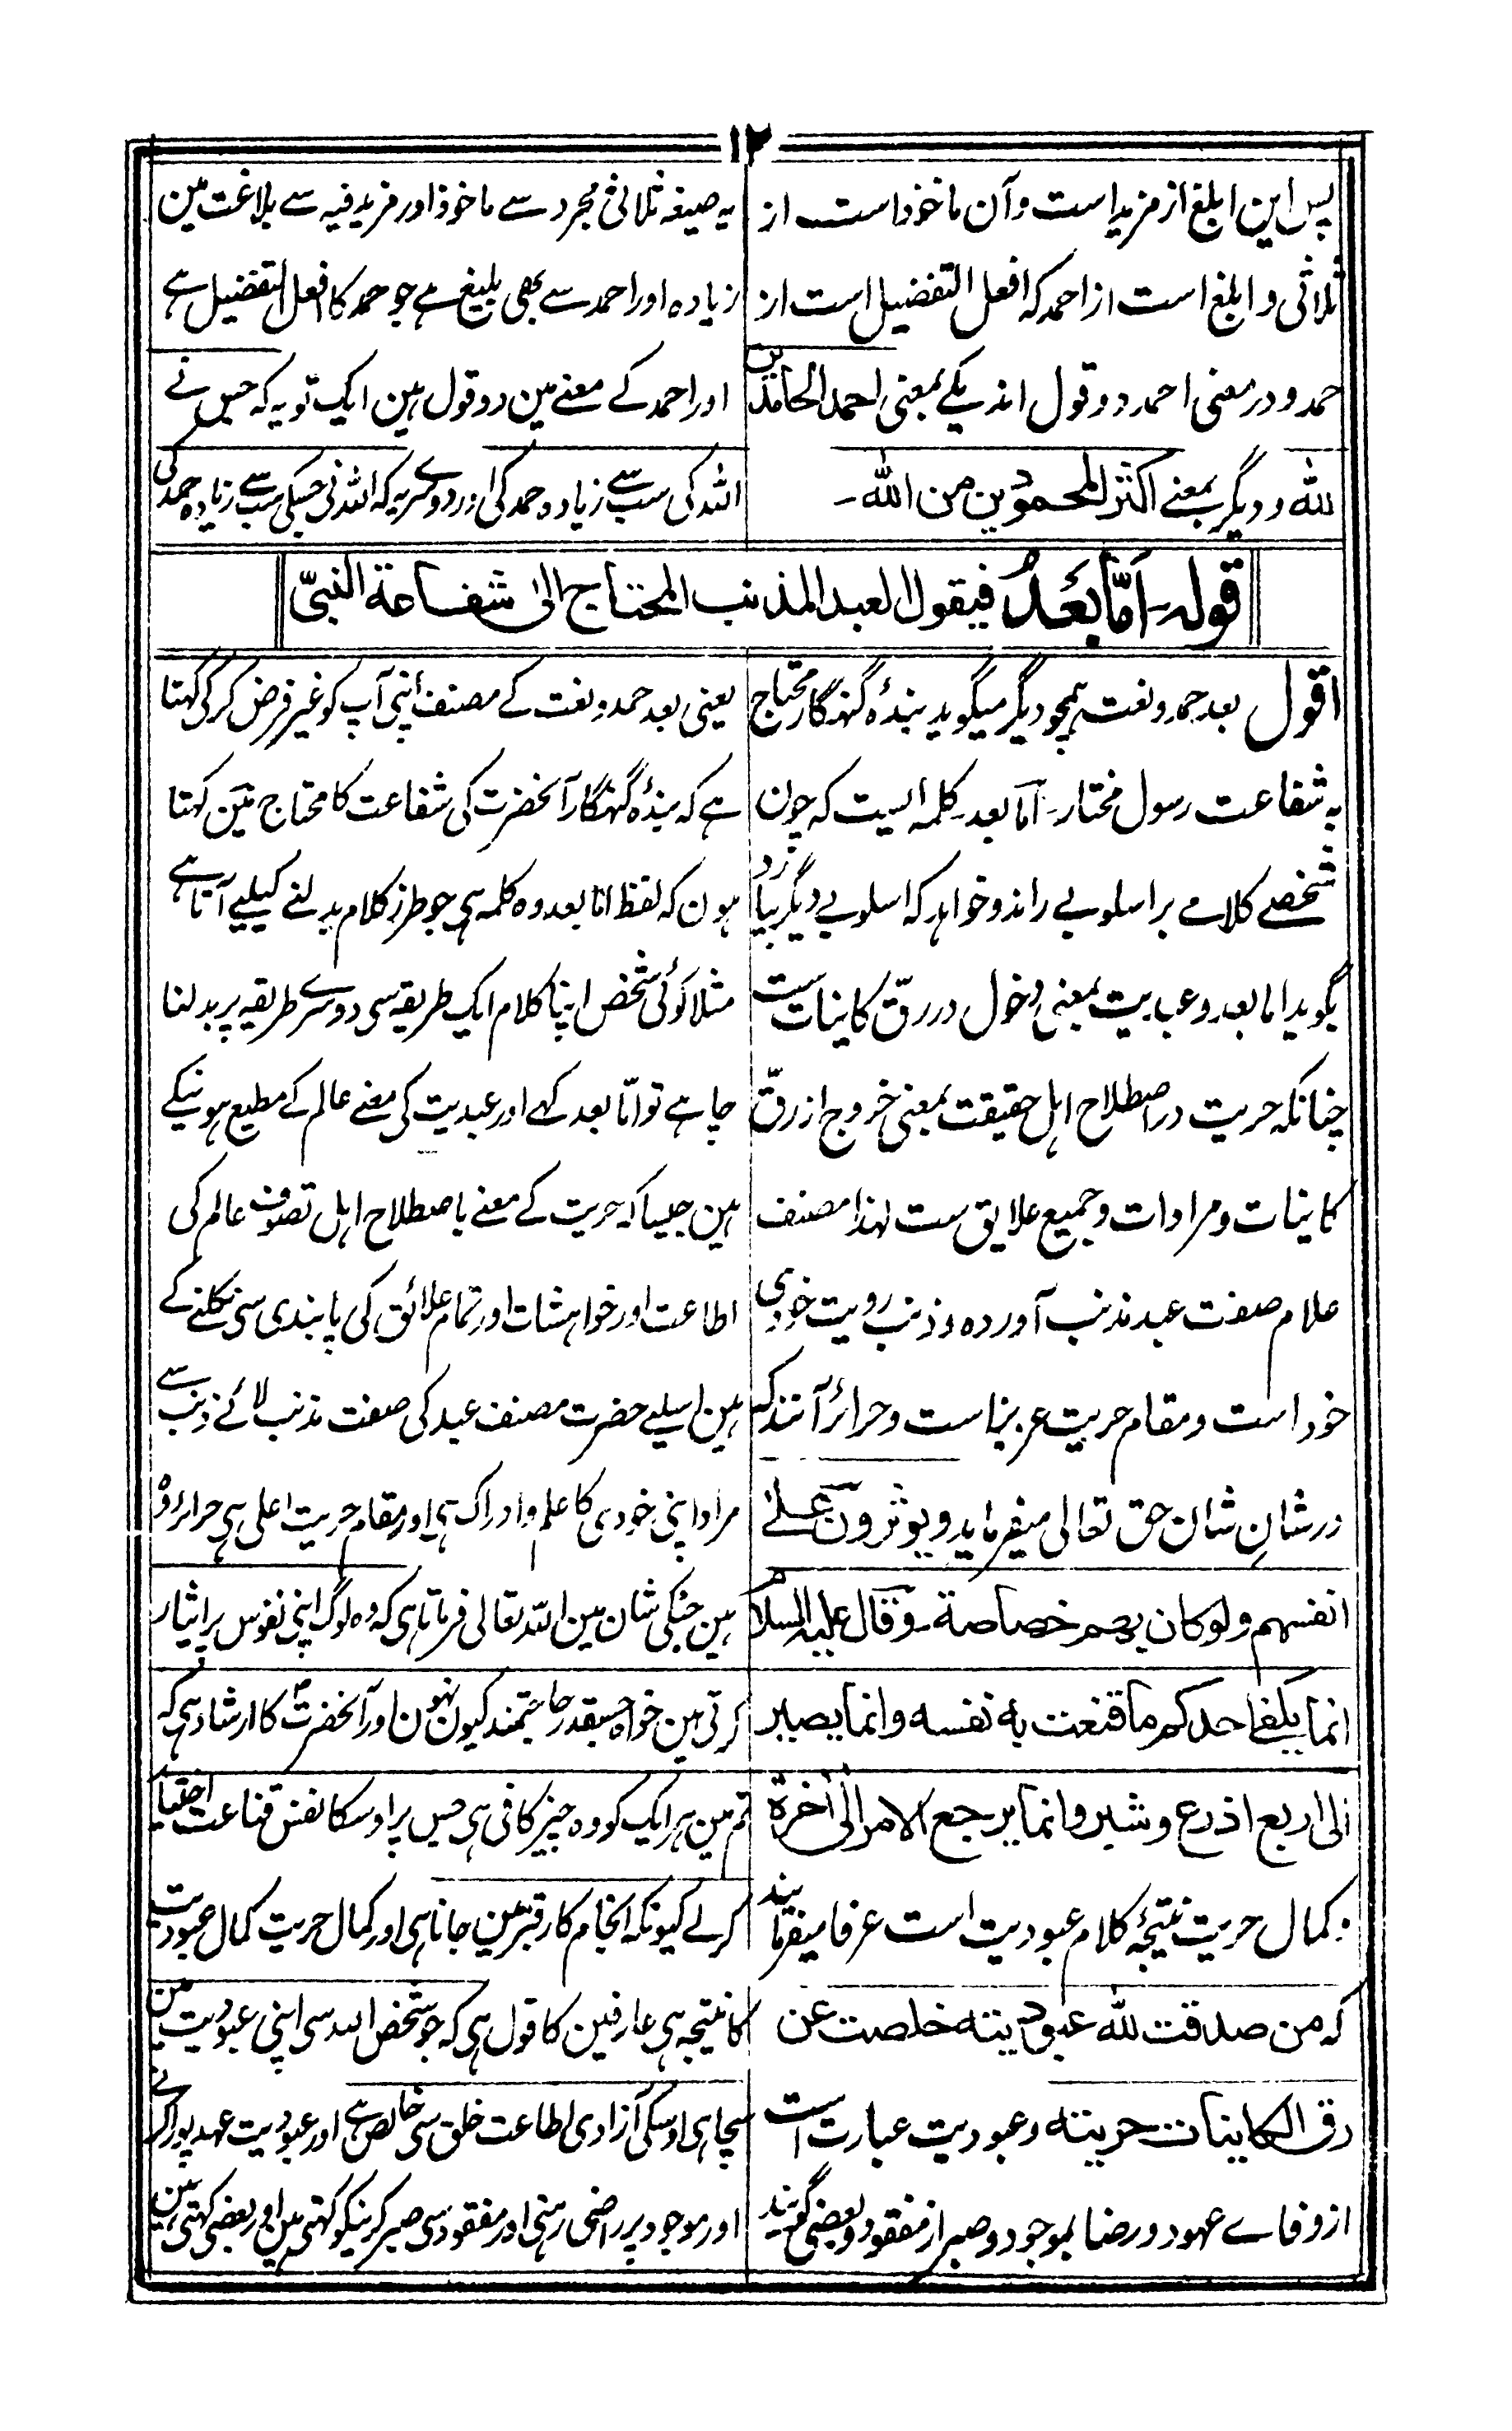 ۱۲
پس این ابلغ از مزید است و آن ماخوذ است از
ثلاثی و ابلغ است از احمد که افعل التفضیل است از
حمد و در معنی احمد دو قول اند یکے بمعنی احمد الحامدین
للّٰه و دیگر بمعنے اکثر المحمودین من اللّٰه۔
یہ صیغہ ثلاثی مجرد سے ماخوذ اور مزید فیہ سے بلاغت مین
زیادہ اور احمد سے بھی بلیغ ہے جو حمد کا افعل التفضیل ہے
اور احمد کے معنے مین دو قول ہین ایک تو یہ کہ جس نے
اللہ کی سب سے زیادہ حمد کی اور دوسرے یہ کہ اللہ نی جسکی سب سے زیادہ حمد کی
قولہ۔ اَمّا بَعدُ فیقول العبد المذنب المحتاج الیٰ شفاعة النبیّ
اقول بعد حمد و نعت ہمچو دیگر میگوید بندۂ گنہگار محتاج
بہ شفاعت رسول مختار۔ اما بعد۔ کلمہ ایست کہ چون
شخصے کلامے بر اسلوبے راند و خواہد کہ اسلوبے دیگر بیارد
بگوید اما بعد و عبدیت بمعنی دخول در رقّ کاینات ست
چنانکہ حریت در اصطلاح اہل حقیقت بمعنی خروج از رقّ
کاینات و مرادات و جمیع علایق ست لہذا مصنف
علام صفت عبد مذنب آوردہ و ذنب رویت خودی
خود است و مقام حریت عزیز است و حرائر آنند کہ
در شانِ شان حق تعالی میفرماید و یوثرون علےٰ
انفسہم ولو کان بہم خصاصة۔ و قال علیہ السلام
انما یکفے احدکم ما قنعت بہ نفسہ و انما یصیر
الی اربع اذرع و شبر و انما یرجع الامر الیٰ اٰخرة
کمال حریت نتیجۂ کلام عبودیت است عرفا میفرمایند
کہ من صدقت للّٰه عبودیتہ خلصت عن
رق الکاینات حریتہ و عبودیت عبارت است
از وفاے عہود و رضا بموجود و صبر از مفقود و بعضی گویند
یعنی بعد حمد و نعت کے مصنف اپنی آپ کو غیر فرض کر کی کہتا
ہے کہ بندۂ گنہگار آنحضرت کی شفاعت کا محتاج مَین کہتا
ہون کہ لفظ اما بعد وہ کلمہ ہی جو طرز کلام بدلنے کیلیے آتا ہے
مثلا کوئی شخص اپنا کلام ایک طریقہ سی دوسرے طریقہ پر بدلنا
چاہے تو امّا بعد کہے اور عبدیت کی معنے عالم کے مطیع ہونیکے
ہین جیسا کہ حریت کے معنے باصطلاح اہل تصوف عالم کی
اطاعت اور خواہشات اور تمام علائق کی پابندی سی نکلنے کے
ہین اسلیے حضرت مصنف عبد کی صفت مذنب لائے ذنب سے
مراد اپنی خودی کا علم و ادراک ہی اور مقام حریت اعلی ہی حرائر وہ
ہین جنکی شان مین اللہ تعالی فرماتا ہی کہ وہ لوگ اپنی نفوس پر ایثار
کرتی ہین خواہ جسقدر حاجتمند کیون نہون اور آنحضرتؐ کا ارشاد ہی کہ
تم مین ہر ایک کو وہ چیز کافی ہی جس پر اوسکا نفس قناعت اختیار
کرلے کیونکہ انجام کار قبر مین جانا ہی اور کمال حریت کمال عبودیت
کا نتیجہ ہی عارفین کا قول ہی کہ جو شخص اللہ سی اپنی عبودیت مین
سچا ہی اوسکی آزادی اطاعت خلق سی خالص ہے اور عبودیت عہد پورا کرنے
اور موجود پر راضی رہنی اور مفقود سی صبر کرنیکو کہتی ہین اور بعضی کہتی ہین